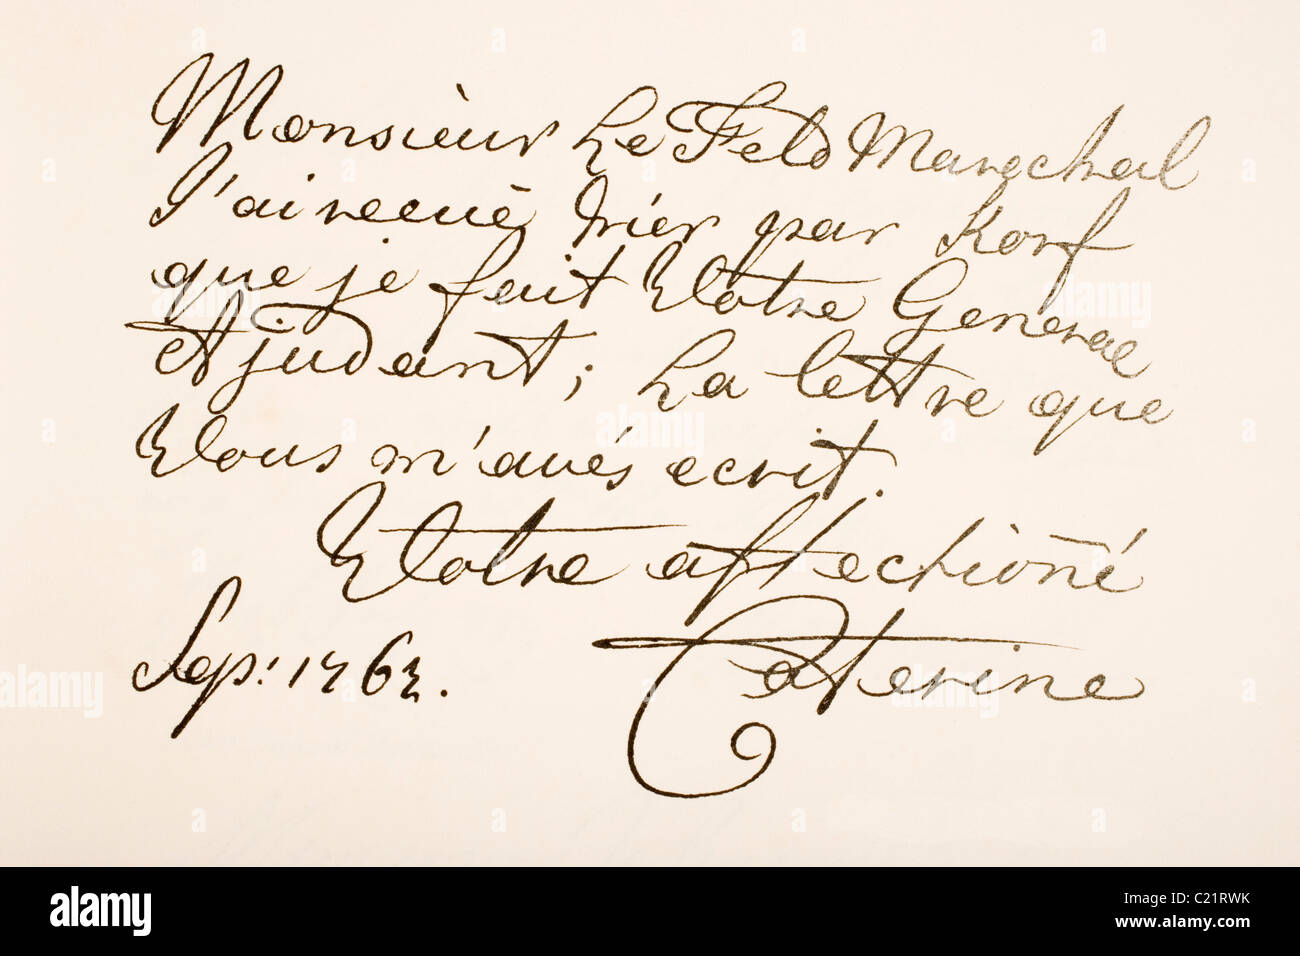 Monsieur Le Feld Marechal
J'ai receuë hier par Korf
que je fait Votre General
Ajudant; La lettre que
Vous m'avés ecrit.
Votre affectionné
Sep: 1763. Caterine
alamy
Image ID: C21RWK
www.alamy.com